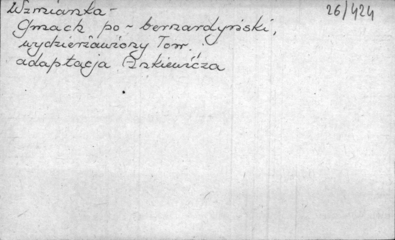 Wzmianka - 26/424
Gmach po - bernardyński,
wydzierżawiony Tow.
adaptacja